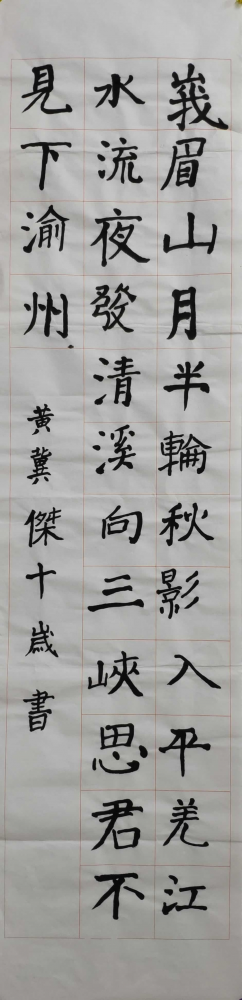 峩眉山月半輪秋影入平羌江
水流夜發清溪向三峽思君不
見下渝州
黄冀傑十歲書